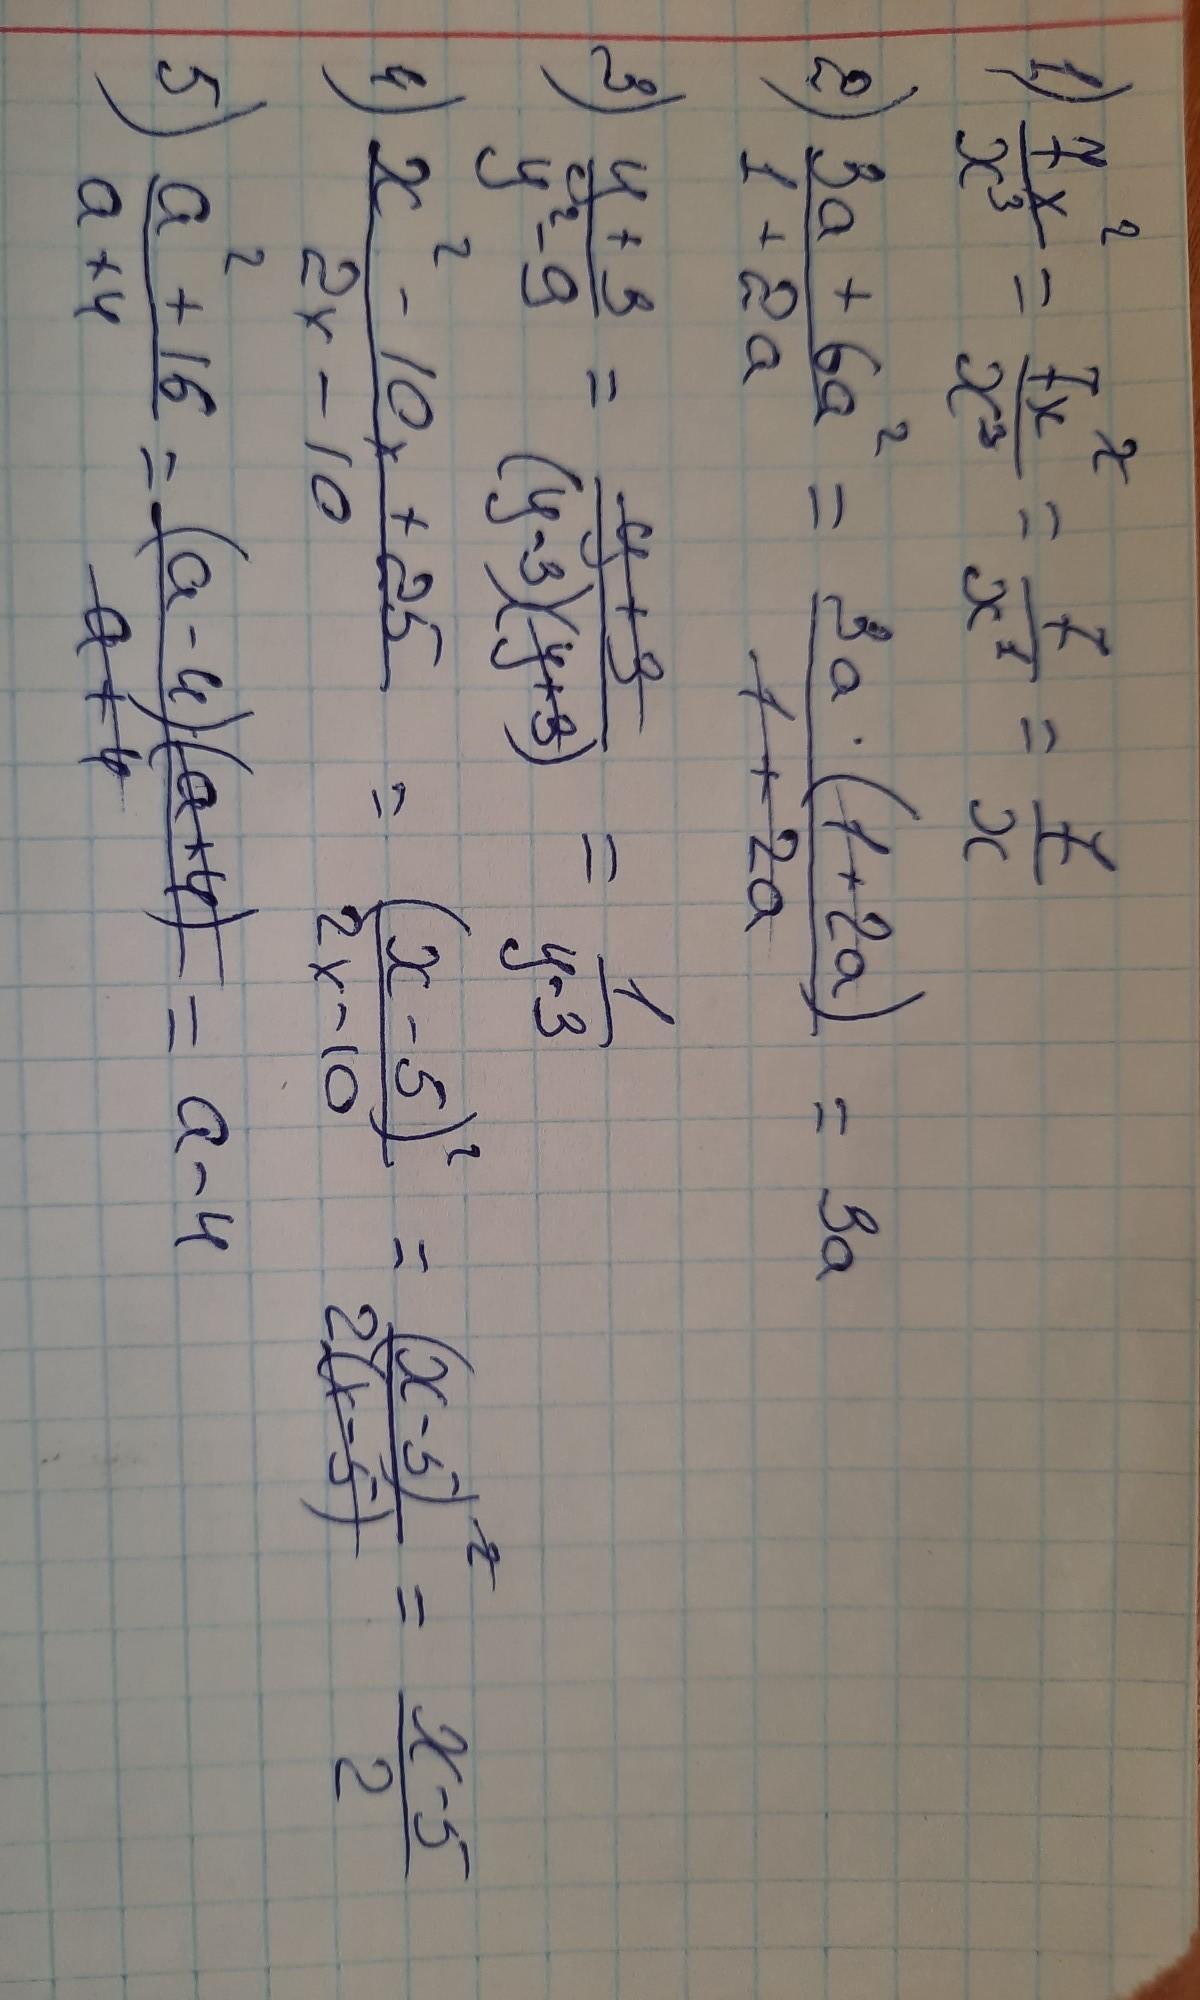 1) 7x²/x³ = 7x²/x³ = 7/x¹ = 7/x
2) 3a + 6a²/1 + 2a = 3a · (1 + 2a)/1 + 2a = 3a
3) y + 3/y² - 9 = y + 3/(y - 3)(y + 3) = 1/y - 3
4) x² - 10x + 25/2x - 10 = (x - 5)²/2x - 10 = (x - 5)²/2(x - 5) = x - 5/2
5) a² + 16/a + 4 = (a - 4)(a + 4)/a + 4 = a - 4